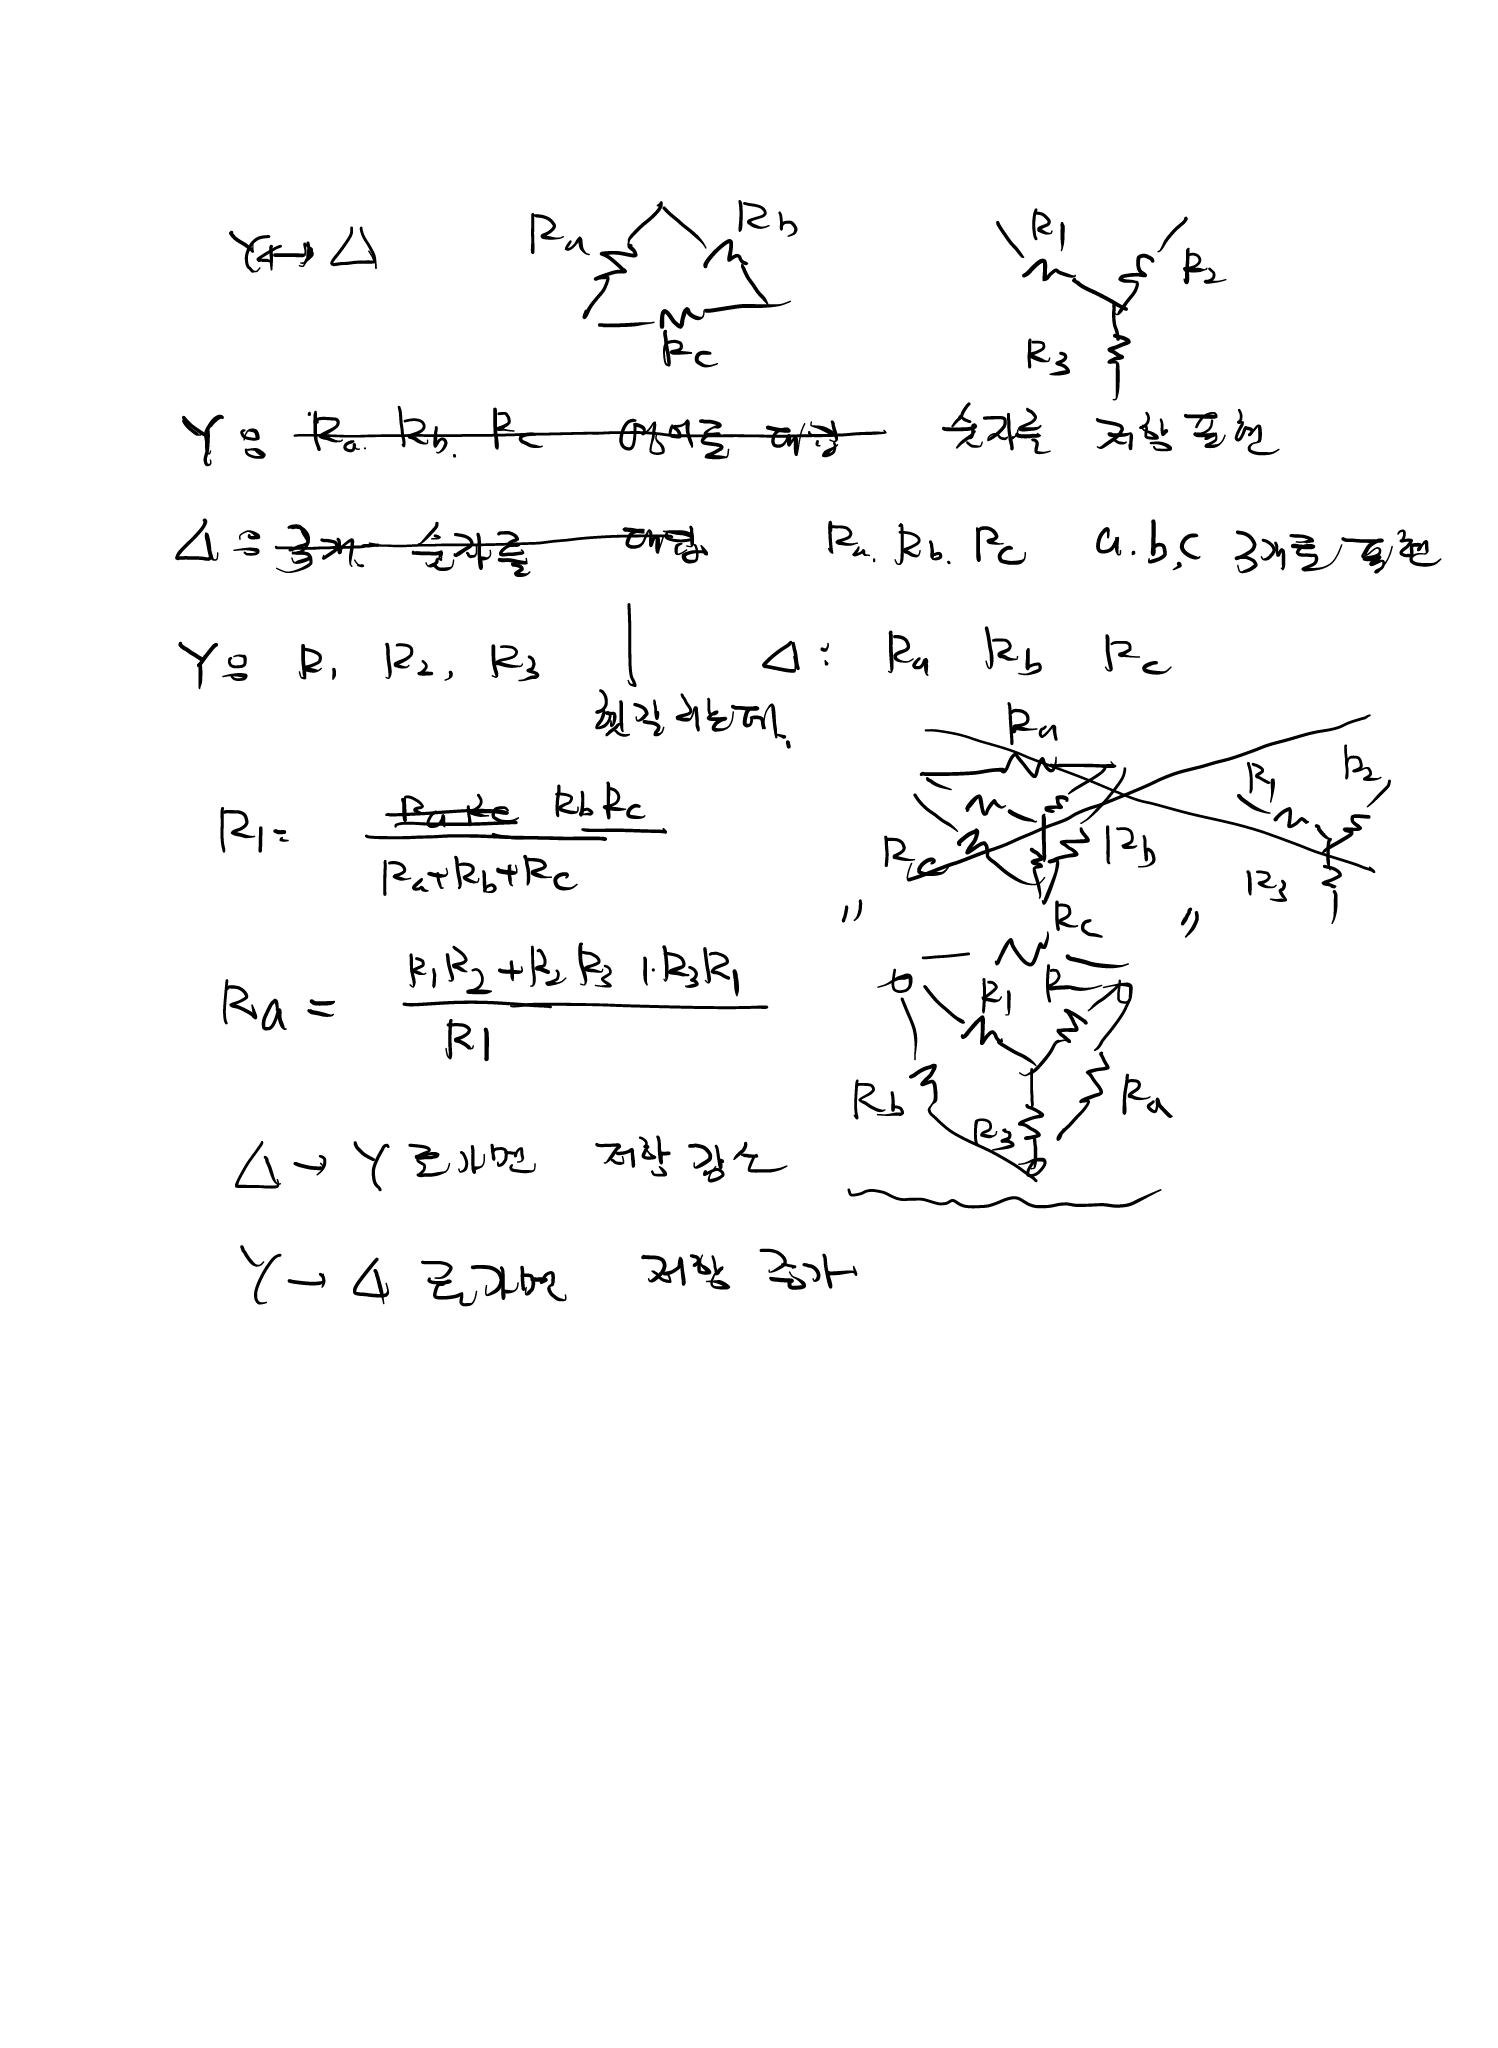 Y ↔ △ Ra Rb Rc R1 R2 R3
Y는 Ra. Rb. Rc 영어를 대입 숫자를 저항 표현
△는 3개 숫자를 대입 Ra. Rb. Rc a.b,c 3개를 표현
Y는 R1 R2, R3 △: Ra Rb Rc
헷갈리는데.
Ra Rc Rb R1 R2 R3
R1= Ra Rc RbRc
Ra+Rb+Rc
" "
Ra = R1R2+R2R3+R3R1
R1
Rc R1 R Rb R3 Ra
△→Y로가면 저항 감소
Y→△로가면 저항 증가